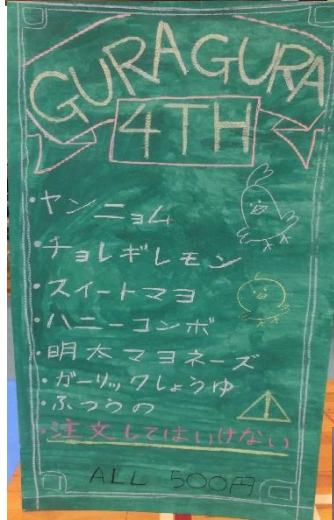 GURAGURA
4TH
・ヤンニョム
・チョレギレモン
・スイートマヨ
・ハニーコンボ
・明太マヨネーズ
・ガーリックしょうゆ
・ふつうの
・注文してはいけない
ALL 500円